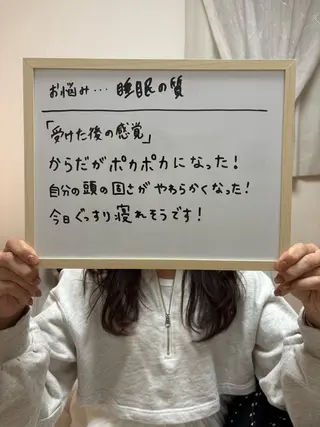 お悩み… 睡眠の質
「受けた後の感覚」
からだがポカポカになった！
自分の頭の固さがやわらかくなった！
今日ぐっすり寝れそうです！